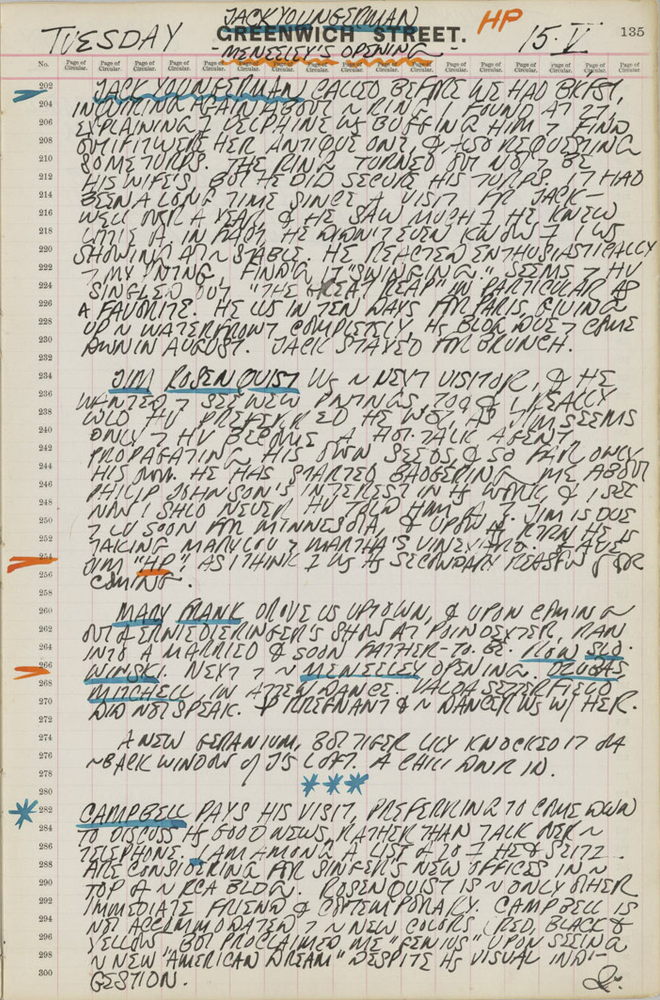 JACK YOUNGERMAN
TUESDAY GREENWICH STREET. HP 15.V 135
MENEELEY'S OPENING
No. Page of Circular. Page of Circular. Page of Circular. Page of Circular. Page of Circular. Page of Circular. Page of Circular. Page of Circular. Page of Circular. Page of Circular. Page of Circular. Page of Circular.
202 JACK YOUNGERMAN CALLED BEFORE WE HAD BKFST,
204 INQUIRING AGAIN ABOUT ~ RING I FOUND AT 27,
206 EXPLAINING DELPHINE WS BUGGING HIM FIND
OUT IF IT WERE HER ANTIQUE ONE, & ALSO REQUESTING
208 SOME TURPS. THE RING TURNED OUT NOT BE
210 HIS WIFE'S, BUT HE DID SECURE HIS TURPS. IT HAD
212 BEEN A LONG TIME SINCE A VISIT FR JACK—
214 WELL OVER A YEAR, & HE SAW MUCH HE KNEW
216 LITTLE IN FACT, HE DIDN'T EVEN KNOW I WS
218 SHOWING AT ~ STABLE. HE REACTED ENTHUSIASTICALLY
220 MY PNTING, FINDING IT "SWINGING." SEEMS HV
222 SINGLED OUT "THE GREAT REAP" IN PARTICULAR AS
224 A FAVORITE. HE LVS IN TEN DAYS FOR PARIS GIVING
226 UP ~ WATERFRONT COMPLETELY, HS BLDG DUE COME
228 DOWN IN AUGUST. JACK STAYED FOR BRUNCH.
230
232
234 JIM ROSENQUIST WS ~ NEXT VISITOR, & HE
236 WANTED SEE NEW PNTINGS, TOO & I REALLY
238 WLD HV PREFERRED HE NOT, AS JIM SEEMS
240 ONLY HV BECOME A HOT-TALK AGENT
242 PROPAGATING HIS OWN SEEDS, & SO FAIR ONLY
244 HIS OWN. HE HAS STARTED BADGERING ME ABOUT
246 PHILIP JOHNSON'S INTEREST IN WORK, & I SEE
248 NOW I SHLD NEVER HV TOLD HIM. JIM IS DUE
250 LV SOON FOR MINNESOTA, & UPON RTRN HE IS
252 TAKING MARY LOU MARTHA'S VINEYARD.
254 JIM "HP" AS I THINK I WS HS SECONDARY REASON FOR
256 COMING.
258
260 MARY FRANK DROVE US UPTOWN, & UPON COMING
262 OUT ERNIE DIERINGER'S SHOW AT POINDEXTER, RAN
264 INTO A MARRIED & SOON FATHER-TO-BE RON SLO-
266 WINSKI. NEXT ~ MENEELEY OPENING. DOUGLAS
268 MITCHELL IN ATTENDANCE. VALDA SETTERFIELD
270 DID NOT SPEAK. PREGNANT & ~ DANCER WS W/ HER.
272
274 A NEW GERANIUM, BUT TIGER LILY KNOCKED IT
276 ~ BACK WINDOW OF J'S LOFT. A CHILL AIR IN.
278 ***
280
282 CAMPBELL PAYS HIS VISIT, PREFERRING TO COME DOWN
284 TO DISCUSS HS GOOD NEWS, RATHER THAN TALK OVER ~
286 TELEPHONE. I AM AMONG A LIST OF 20 HE & SEITZ
288 ARE CONSIDERING FOR SINGER'S NEW OFFICES IN ~
290 TOP OF ~ RCA BLDG. ROSENQUIST IS ~ ONLY OTHER
292 IMMEDIATE FRIEND & CONTEMPORARY. CAMPBELL IS
294 NOT ACCOMMODATED ~ NEW COLORS (RED, BLACK &
296 YELLOW) BUT PROCLAIMED ME "GENIUS" UPON SEEING
298 ~ NEW "AMERICAN DREAM" DESPITE HS VISUAL INDI-
300 GESTION.